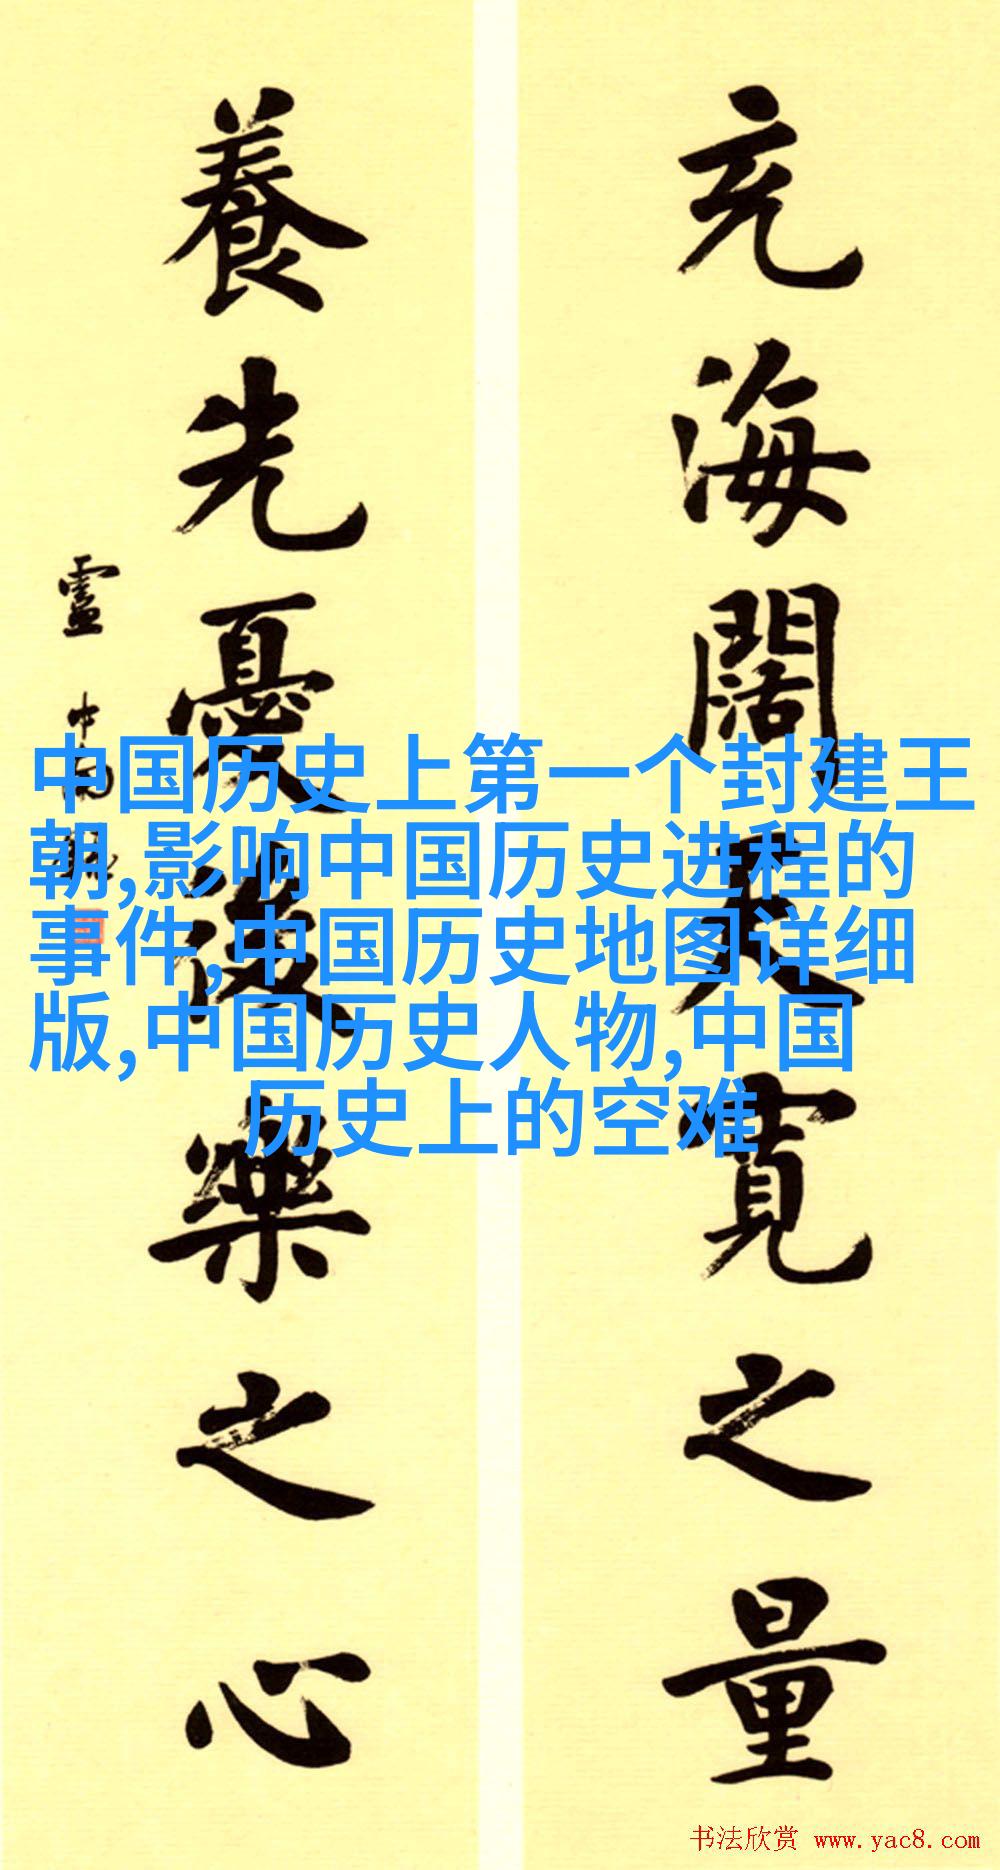 充海闊天寬之量
養先憂後樂之心
中国历史上第一个封建王
朝,影响中国历史进程的
事件,中国历史地图详细
版,中国历史人物,中国
历史上的空难
书法欣赏 www.yac8.com